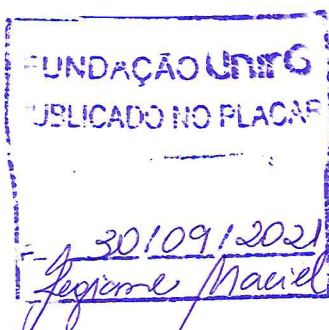 FUNDAÇÃO UnirG
PUBLICADO NO PLACAR
30/09/2021
Maciel